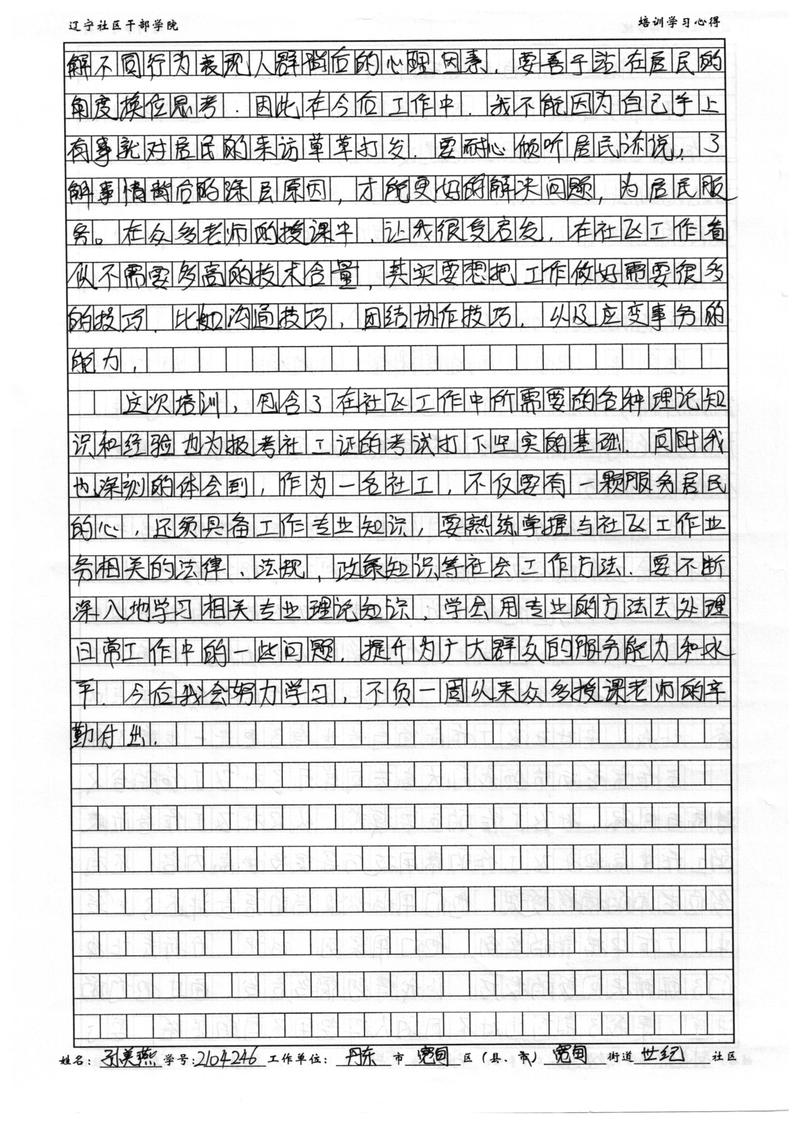 辽宁社区干部学院 培训学习心得
解不同行为表现人群背后的心理因素，要善于站在居民的
角度换位思考．因此在今后工作中．我不能因为自己手上
有事就对居民的来访草草打发．要耐心倾听居民诉说，了
解事情背后的深层原因，才能更好的解决问题，为居民服
务。在众多老师的授课中，让我很受启发，在社区工作看
似不需要多高的技术含量，其实要想把工作做好需要很多
的技巧．比如沟通技巧，团结协作技巧，以及应变事务的
能力．
这次培训，包含了在社区工作中所需要的各种理论知
识和经验也为报考社工证的考试打下坚实的基础．同时我
也深刻的体会到，作为一名社工，不仅要有一颗服务居民
的心，还须具备工作专业知识，要熟练掌握与社区工作业
务相关的法律、法规，政策知识等社会工作方法．要不断
深入地学习相关专业理论知识，学会用专业的方法去处理
日常工作中的一些问题．提升为广大群众的服务能力和水
平．今后我会努力学习，不负一周以来众多授课老师的辛
勤付出．
姓名：孙美燕 学号：2104246 工作单位：丹东 市 宽甸 区（县、市） 宽甸 街道 世纪 社区